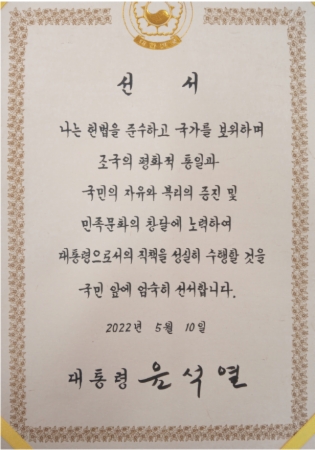 선 서
나는 헌법을 준수하고 국가를 보위하며
조국의 평화적 통일과
국민의 자유와 복리의 증진 및
민족문화의 창달에 노력하여
대통령으로서의 직책을 성실히 수행할 것을
국민 앞에 엄숙히 선서합니다.
2022년 5월 10일
대통령 윤석열